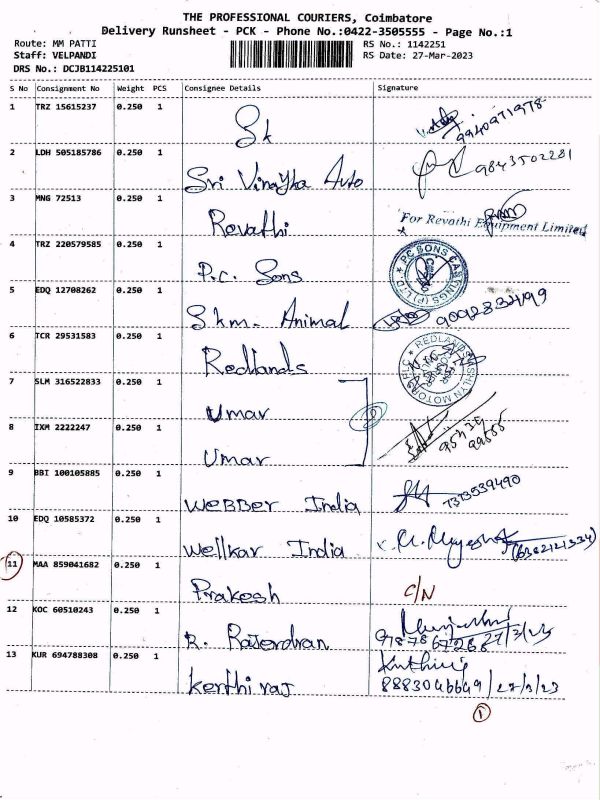 THE PROFESSIONAL COURIERS, Coimbatore
Delivery Runsheet - PCK - Phone No.:0422-3505555 - Page No.:1
Route: MM PATTI RS No.: 1142251
Staff: VELPANDI RS Date: 27-Mar-2023
DRS No.: DCJB114225101
S No Consignment No Weight PCS Consignee Details Signature
1 TRZ 15615237 0.250 1
Sk 9940971978
2 LDH 505185786 0.250 1
Sri Vinayka Auto 9843502281
3 MNG 72513 0.250 1
Revathi For Revathi Equipment Limited
4 TRZ 220579585 0.250 1
P.C. Sons PC SONS CASTINGS (P) LTD
5 EDQ 12708262 0.250 1
S.k.m- Animal
6 TCR 29531583 0.250 1
Redlands REDLANDS ASHLYN MOTORS PLC
7 SLM 316522833 0.250 1
Umar
8 IXM 2222247 0.250 1
Umar
9 BBI 100105885 0.250 1
WEBBER India 7373539490
10 EDQ 10585372 0.250 1
Wellkar India (6382121334)
11 MAA 859041682 0.250 1
Prakesh C/N
12 KOC 60510243 0.250 1
R. Rajendran 9787867268 27/3/23
13 KUR 694788308 0.250 1
kerthi raj 8883046649/27/3/23
1